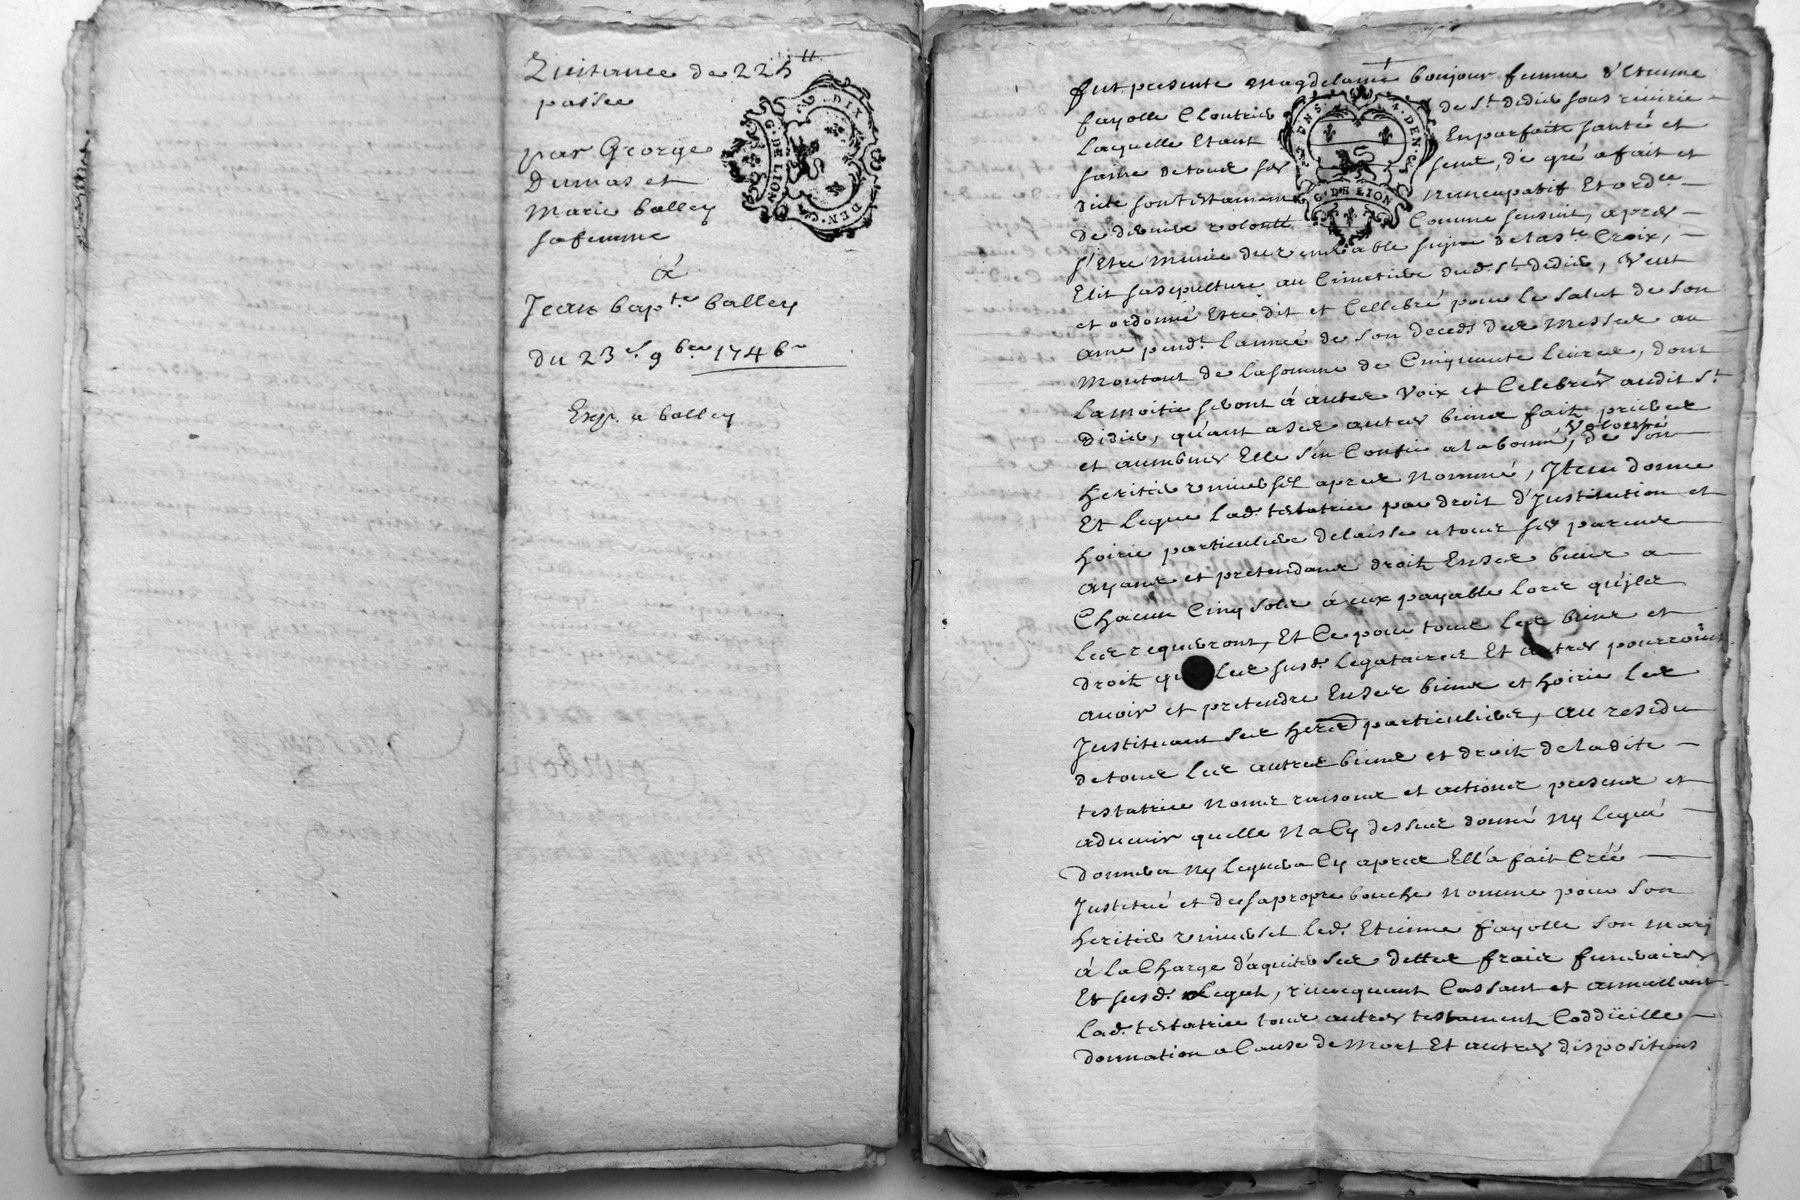 Quittance de 225 ₶
passée
par George
Dumas et
Marie balley
sa femme
à
Jean bap.te balley
du 23.e 9bre 1746
Exp. a balley
DIX DEN.
G. DE LION
fut presente magdelaine bonjour femme d'Etienne
fayolle Cloutrier de St. didier sous rivirie
Laquelle Etant En parfaite santé et
saine de tous ses sens, de gré a fait et
dicté son testament nuncupatif Et ord.re
de derniere volonté Comme sensuit, apres
s'Etre munie du venerable signe de la s.te Croix,
Elit sa sepulture au Cimetiere dud. St. didier, Veut
et ordonne Etre dit et Cellebré pour le salut de son
ame pend.t l'année de son deceds des Messes au
montant de la somme de Cinquante livres, dont
la moitié seront á autes Voix et Celebrés audit St.
Didier, qu'ant a ses autres biens fait prieres
et aumônes Elle s'en Confie a la bonne Volonté de son
heritier universel apres nommé, Item donne
Et legue lad. testatrice par droit d'Institution et
hoirie particuliere delaisse a tous ses parens
ayans et pretendans droit En ses biens a
Chacun Cinq sols á eux payable lors qu'ils
les requerront, Et Ce pour tous les biens et
droit que les susd. legataires Et autres pourroint
avoir et pretendre En ses biens et hoirie les
Instituant ses her.ers particuliers, au residu
de tous les autres biens et droit de ladite
testatrice noms raisons et actions presens et
advenir quelle N'a Cy dessus donné Ny legué
donnera Ny leguera Cy apres Ell'a fait Créé
Institué et de sa propre bouche nommé pour son
heritier universel led. Etienne fayolle son mary
á la Charge d'aquiter ses dettes fraix funeraires
Et susd. legat, revocquant Cassant et annullant
lad. testatrice tous autres testament, Coddicille
donnation a Cause de Mort Et autres dispositions
G. DE LION
DEN.